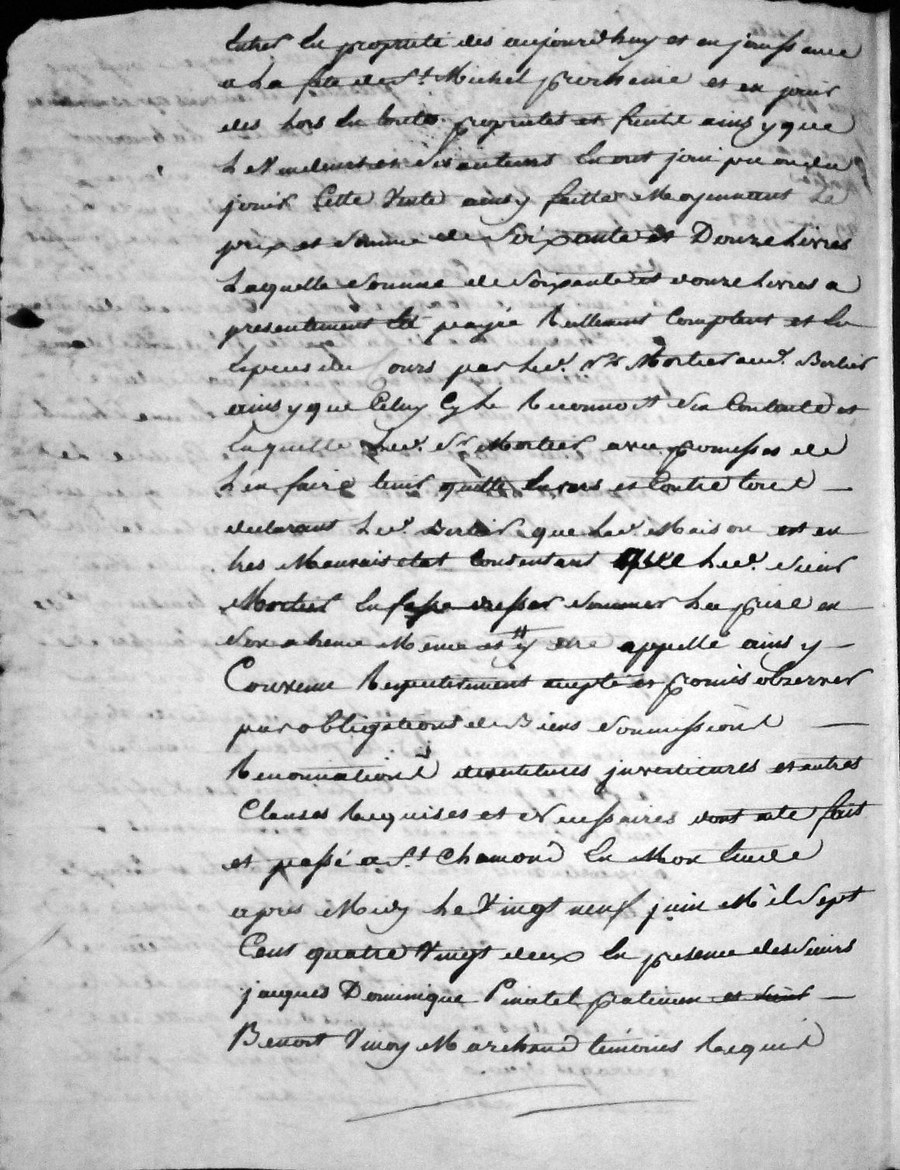 Entrer En propriete des aujourdhuy et en jouissance
a La fete de St. Michel prochaine et en jouir
des Lors En toute propriete et fruité ainsy que
Le Vendeur et Ses auteurs En ont joui pu ou du
jouir Cette Vente ainsy faitte Moyennant Le
prix et Somme de Soixante et Douze Livres
Laquelle Somme de Soixante et douze Livres a
presentement été payée Reellement Comptant et En
Especes du Cours par Led. Sr Mortier aud. Berlier
ainsy que Celuy Cy Le Reconnoit S'en Contente et
En quitte Led. Sr Mortier avec promesse de
L'en faire tenir quitte Envers et Contre tous
declarant Led. Berlier que Lad. Maison est en
tres Mauvais état Consentant que Led. Sieur
Mortier En fasse dresser Sommer La prise en
Son absence Meme et Sy etre appellé ainsy
Convenu Respectivement accepté et promis observer
par obligations de Biens Soumissions
Renonciations devestitures investitures et autres
Clauses Requises et Necessaires dont acte fait
et passé a St. Chamond En Mon Etude
apres Midy Le Vingt neuf juin Mil Sept
Cent quatre Vingt deux En presence des Sieurs
jacques Dominique Pinatel praticien et Sieur
Benoit Vinoy Marchand temoins Requis